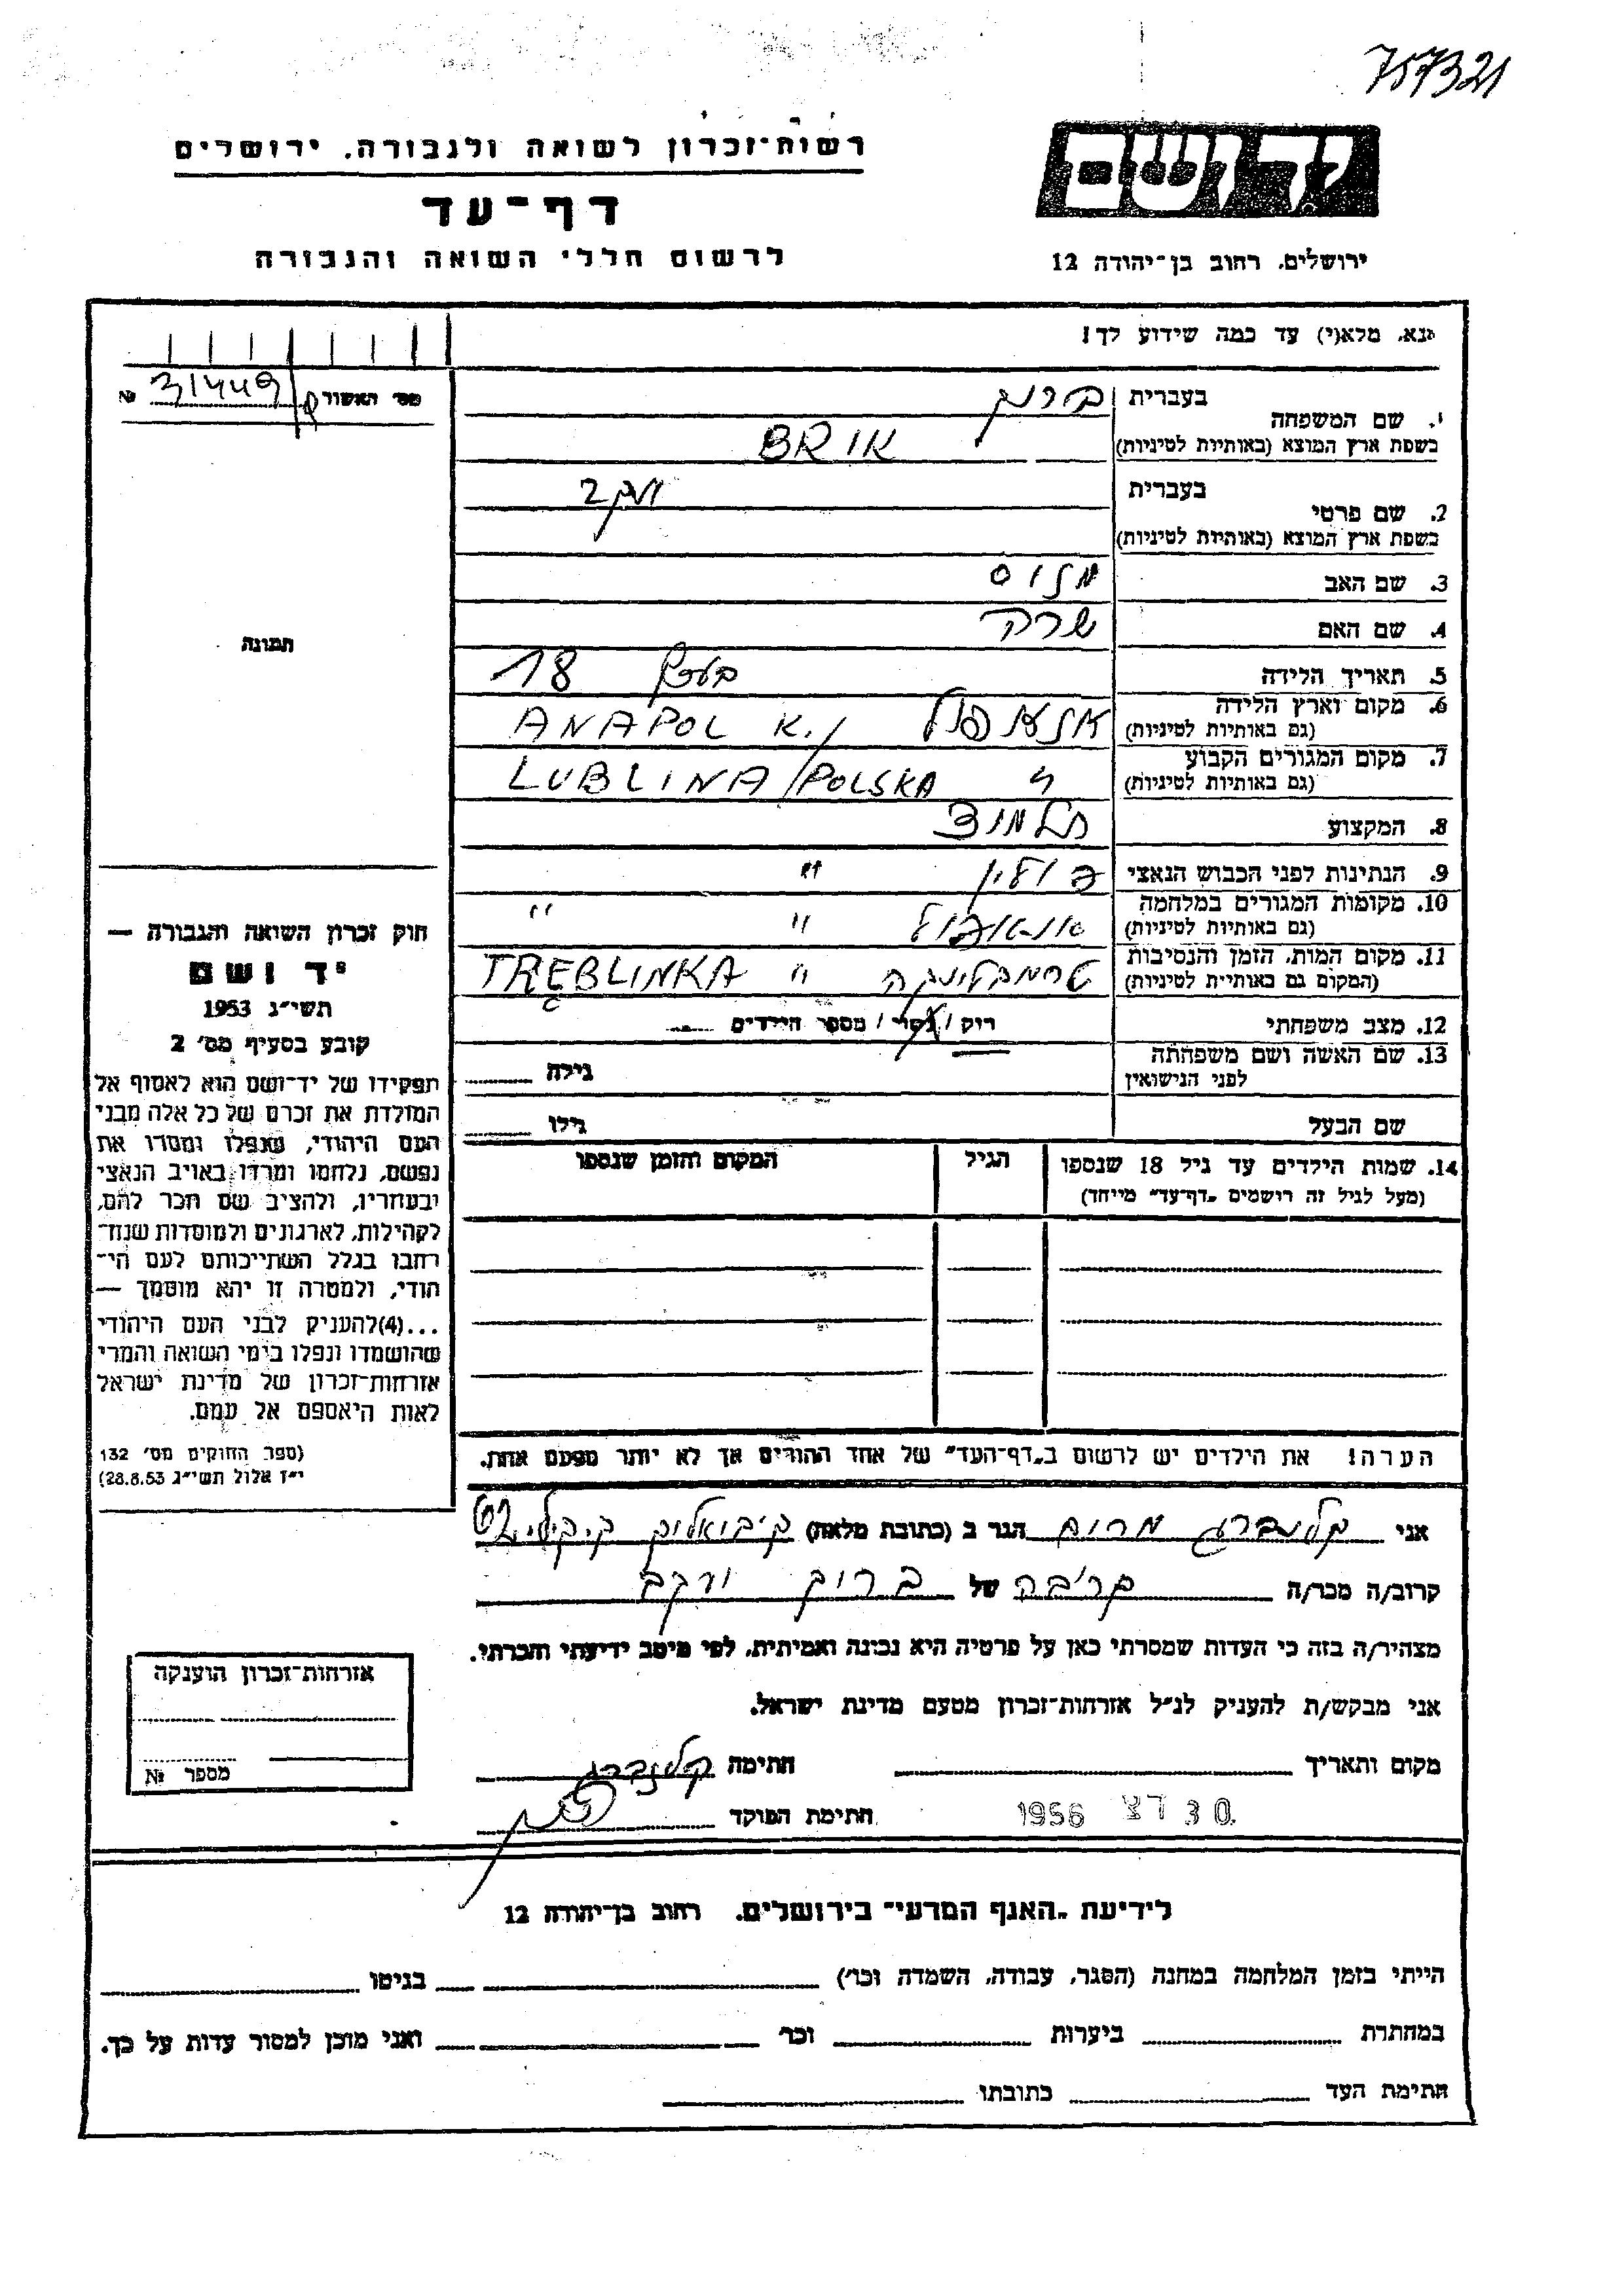 757321
רשות-זכרון לשואה ולגבורה, ירושלים
דף-עד
לרשום חללי השואה והגבורה
יד ושם
ירושלים, רחוב בן-יהודה 12
נא, מלא(י) עד כמה שידוע לך!
מס' האשור 31449 №
1. שם המשפחה
בעברית
בשפת ארץ המוצא (באותיות לטיניות)
2. שם פרטי
בעברית
בשפת ארץ המוצא (באותיות לטיניות)
3. שם האב
4. שם האם
5. תאריך הלידה 18
6. מקום וארץ הלידה (גם באותיות לטיניות) ANAPOL K./
7. מקום המגורים הקבוע (גם באותיות לטיניות) " LUBLINA/POLSKA
8. המקצוע תלמיד
9. הנתינות לפני הכבוש הנאצי פולין "
10. מקומות המגורים במלחמה (גם באותיות לטיניות) " "
11. מקום המות, הזמן והנסיבות (המקום גם באותיית לטיניות) טרמבלינקה " TRĘBLINKA
12. מצב משפחתי רוק / נשוי / מספר הילדים
13. שם האשה ושם משפחתה לפני הנישואין גילה
שם הבעל גילו
14. שמות הילדים עד גיל 18 שנספו
(מעל לגיל זה רושמים „דף-עד" מייחד)
הגיל
המקום והזמן שנספו
הערה! את הילדים יש לרשום ב„דף-העד" של אחד ההורים אך לא יותר מפעם אחת.
תמונה
חוק זכרון השואה והגבורה —
יד ושם
תשי"ג 1953
קובע בסעיף מס' 2
תפקידו של יד-ושם הוא לאסוף אל
המולדת את זכרם של כל אלה מבני
העם היהודי, שנפלו ומסרו את
נפשם, נלחמו ומרדו באויב הנאצי
ובעוזריו, ולהציב שם וזכר להם,
לקהילות, לארגונים ולמוסדות שנח-
רבו בגלל השתייכותם לעם הי-
הודי, ולמטרה זו יהא מוסמך —
...(4)להעניק לבני העם היהודי
שהושמדו ונפלו בימי השואה והמרי
אזרחות-זכרון של מדינת ישראל
לאות היאספם אל עמם.
(ספר החוקים מס' 132
י"ז אלול תשי"ג 28.8.53)
אני קלינברג מרים הגר ב (כתובת מלאה)
קרוב/ה מכר/ה קרובה של ברוק
מצהיר/ה בזה כי העדות שמסרתי כאן על פרטיה היא נכונה ואמיתית, לפי מיטב ידיעתי והכרתי.
אני מבקש/ת להעניק לנ"ל אזרחות-זכרון מטעם מדינת ישראל.
מקום ותאריך חתימה
30 דצ 1956 חתימת הפוקד
אזרחות-זכרון הוענקה
מספר №
לידיעת „האגף המדעי" בירושלים, רחוב בן-יהודה 12
הייתי בזמן המלחמה במחנה (הסגר, עבודה, השמדה וכו') בגיטו
במחתרת ביערות וכו' ואני מוכן למסור עדות על כך.
חתימת העד כתובתו